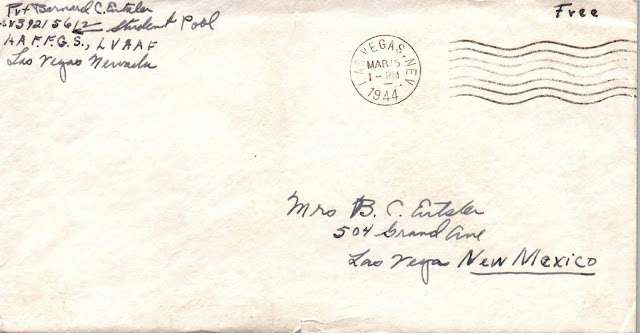 Pvt Bernard C. Eutsler
39215612 Student Pool
H A F. F. G. S., L V A A F
Las Vegas Nevada
Free
LAS VEGAS, NEV.
MAR 15
1 - PM
1944
Mrs B. C. Eutsler
504 Grand Ave
Las Vegas New Mexico